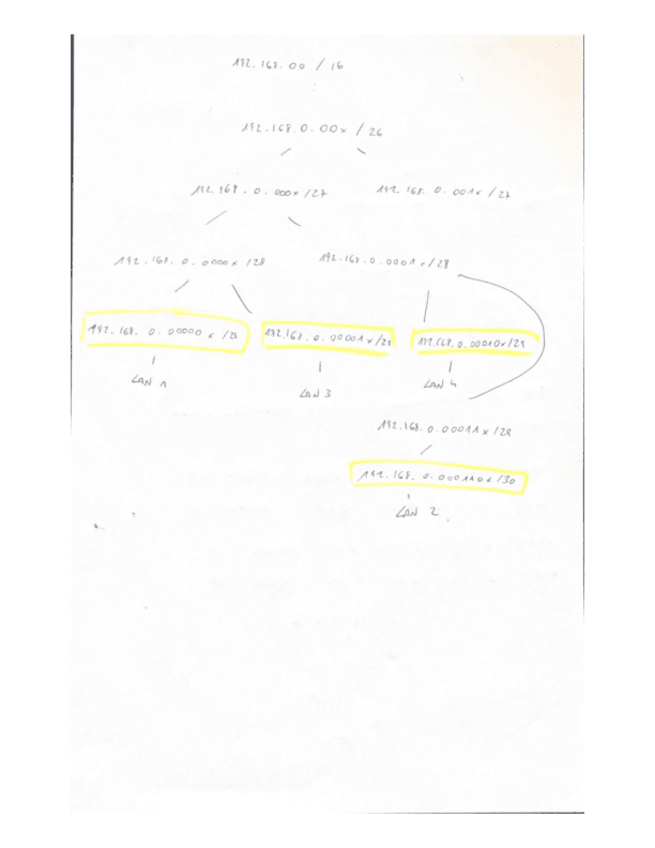 192.168.00 / 16
192.168.0.00x / 26
192.168.0.000x /27 192.168.0.001x / 27
192.168.0.0000x /28 192.168.0.0001x /28
192.168.0.00000x /29 192.168.0.00001x /29 192.168.0.00010x /29
LAN 1 LAN 3 LAN 4
192.168.0.00011x /29
192.168.0.000110x /30
LAN 2